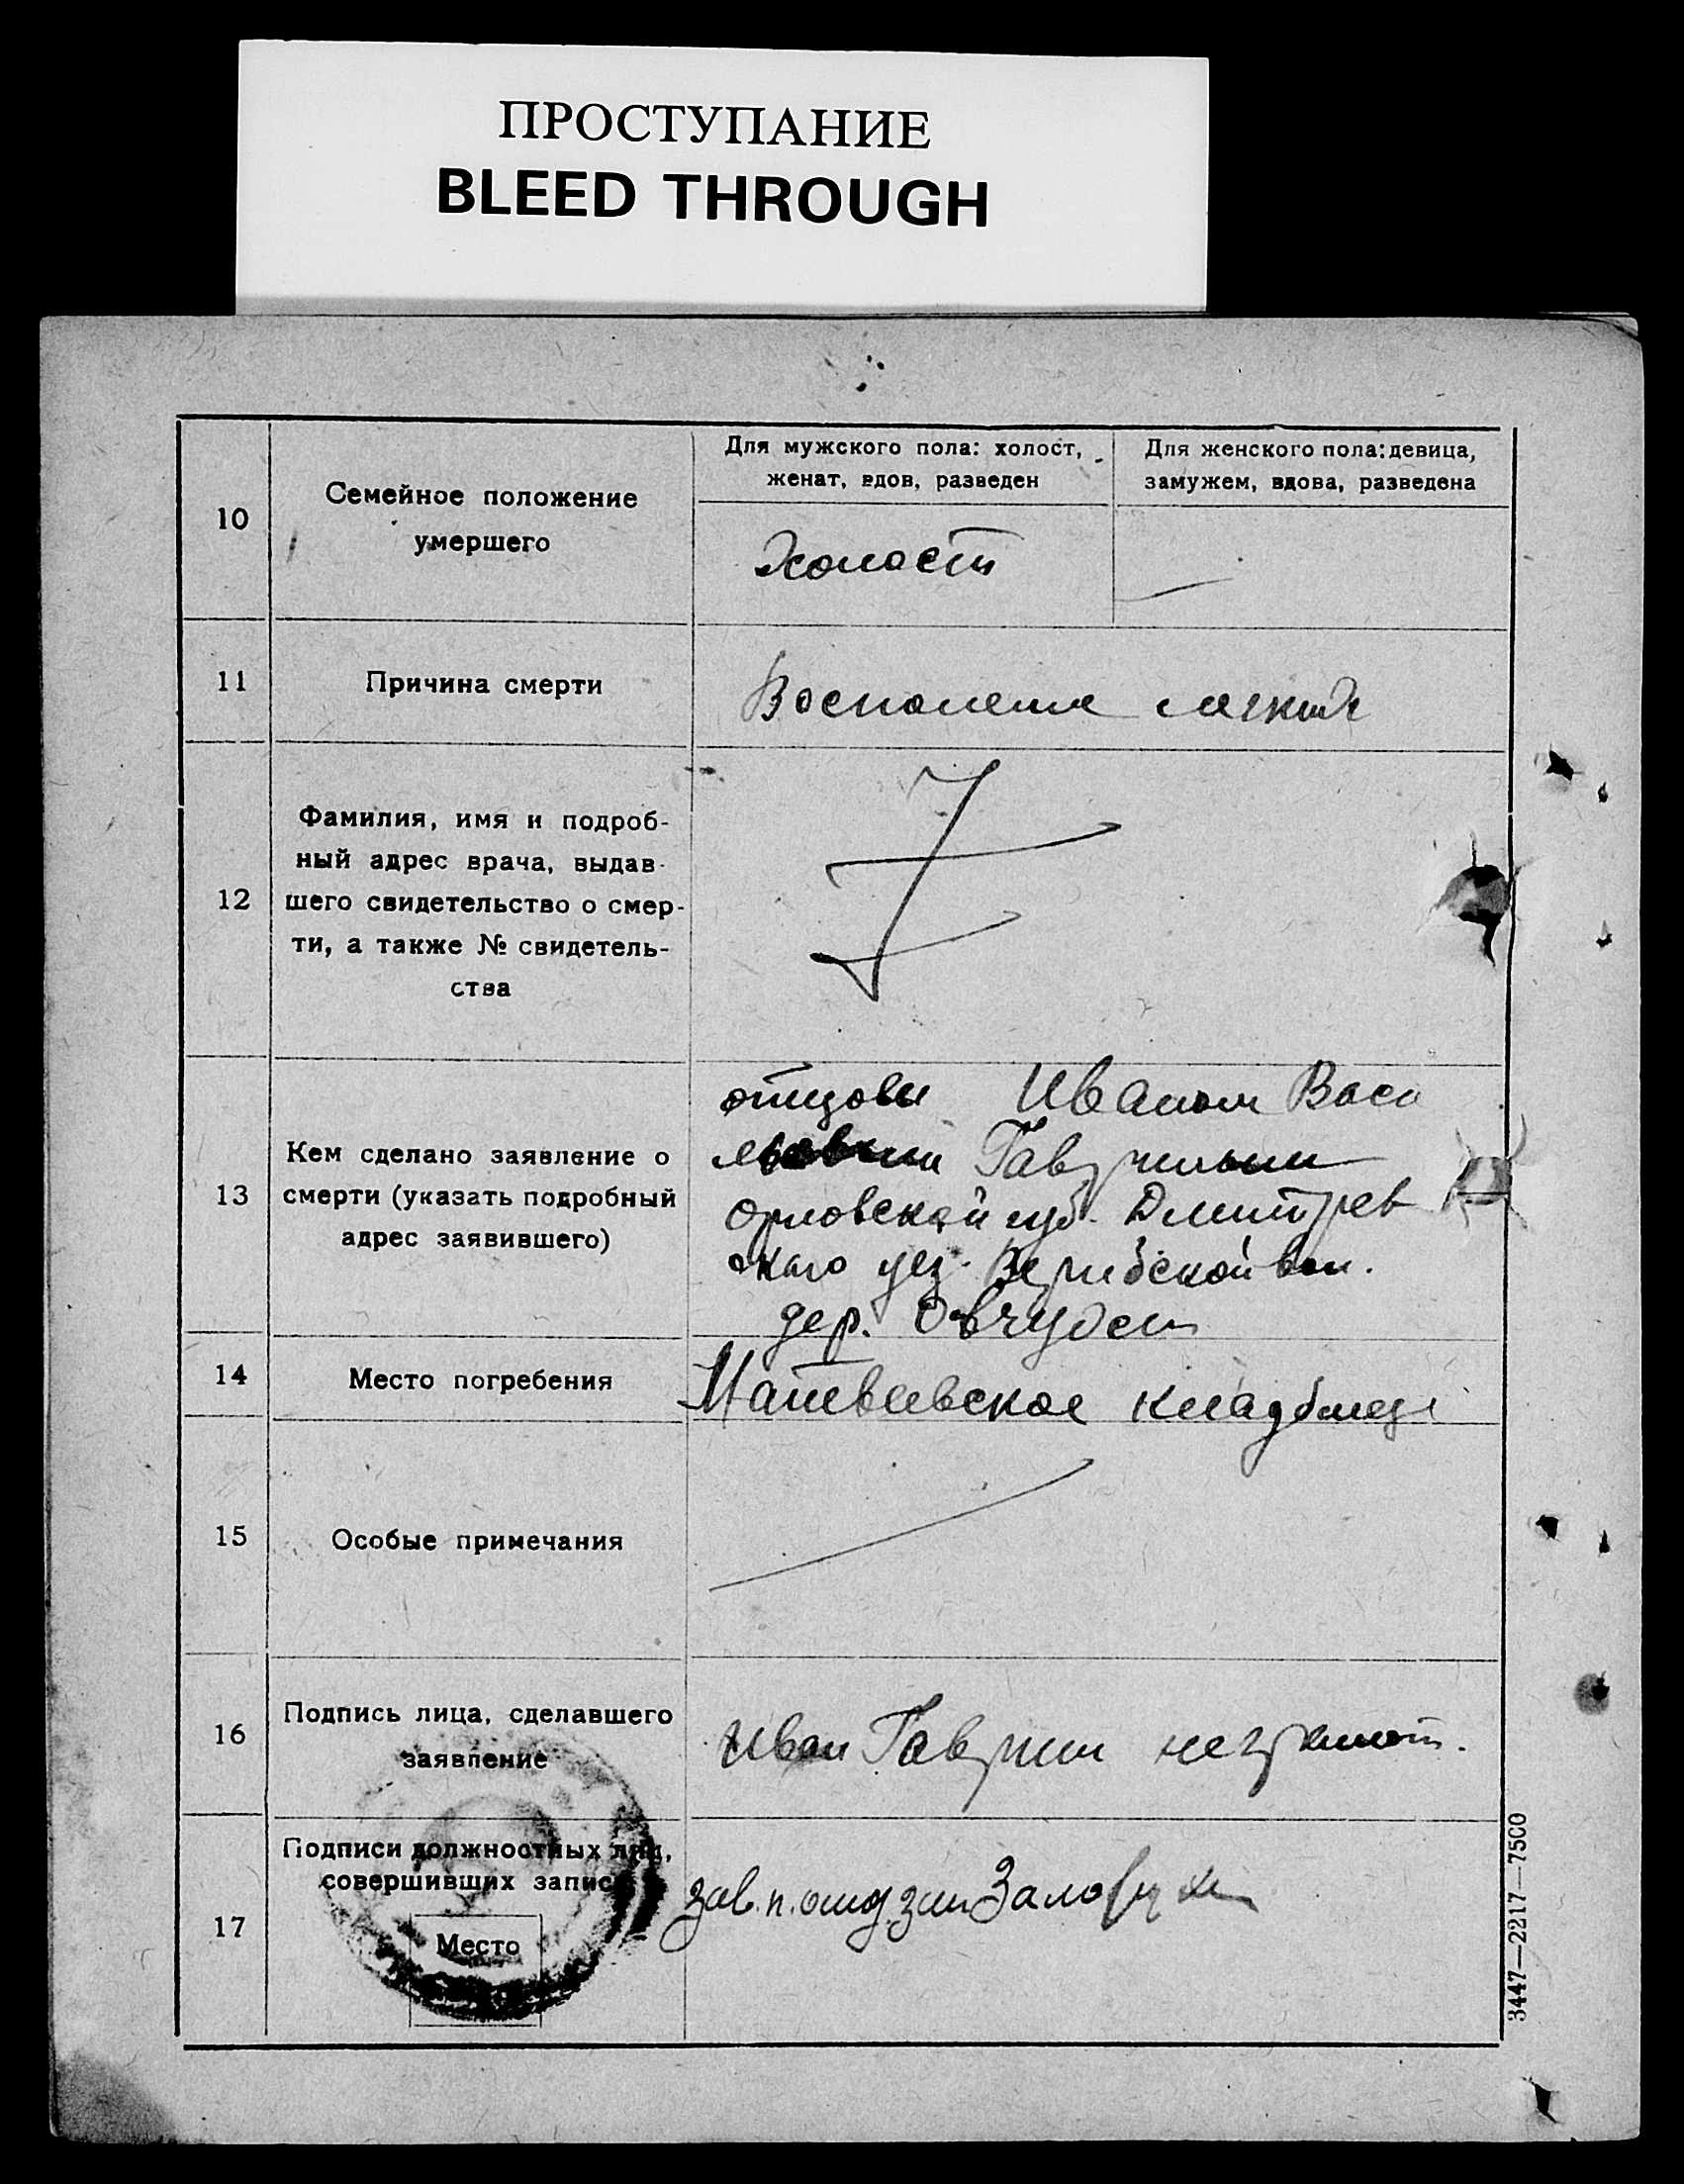 ПРОСТУПАНИЕ
BLEED THROUGH
10
Семейное положение
умершего
Для мужского пола: холост,
женат, вдов, разведен
Для женского пола: девица,
замужем, вдова, разведена
Холост
11
Причина смерти
Воспаление легких
12
Фамилия, имя и подроб-
ный адрес врача, выдав-
шего свидетельство о смер-
ти, а также № свидетель-
ства
13
Кем сделано заявление о
смерти (указать подробный
адрес заявившего)
отцом Иваном Васи
Гавриным
Орловской губ. Дмитров
скаго уез. вол.
дер.
14
Место погребения
Матвеевское кладбище
15
Особые примечания
16
Подпись лица, сделавшего
заявление
Иван Гаврин неграмот.
17
Подписи должностных лиц,
совершивших запись
Место
зав. п.
3447—2217—7500